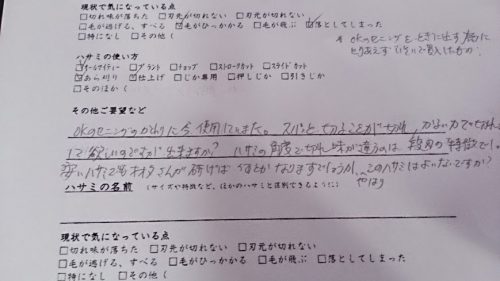 現状で気になっている点
□切れ味が落ちた □刃先が切れない □刃元が切れない
□毛が逃げる、すべる ☑毛がひっかかる □毛が飛ぶ ☑落としてしまった
□特になし □その他（
okのセニングを、ときに出す為に
とりあえず 安いので買入したもの。
ハサミの使い方
☑オールマイティー □ブラント □チョップ □ストロークカット □スライドカット
☑あら刈り ☑仕上げ □じか専用 □押しじか □引きじか
□そのほか（
その他ご要望など
okのセニングのかわりに今使用しています。スパッと切ることができ
して欲しいのですが出来ますか？ ハサミの角度で切れ味が違うのは
安いハサミでもオタさんが研げば なりますでしょうか、このハサミはよくないですか？
やはり
ハサミの名前 （サイズや特徴など、ほかのハサミと識別できるように）
現状で気になっている点
□切れ味が落ちた □刃先が切れない □刃元が切れない
□毛が逃げる、すべる □毛がひっかかる □毛が飛ぶ □落としてしまった
□特になし □その他（